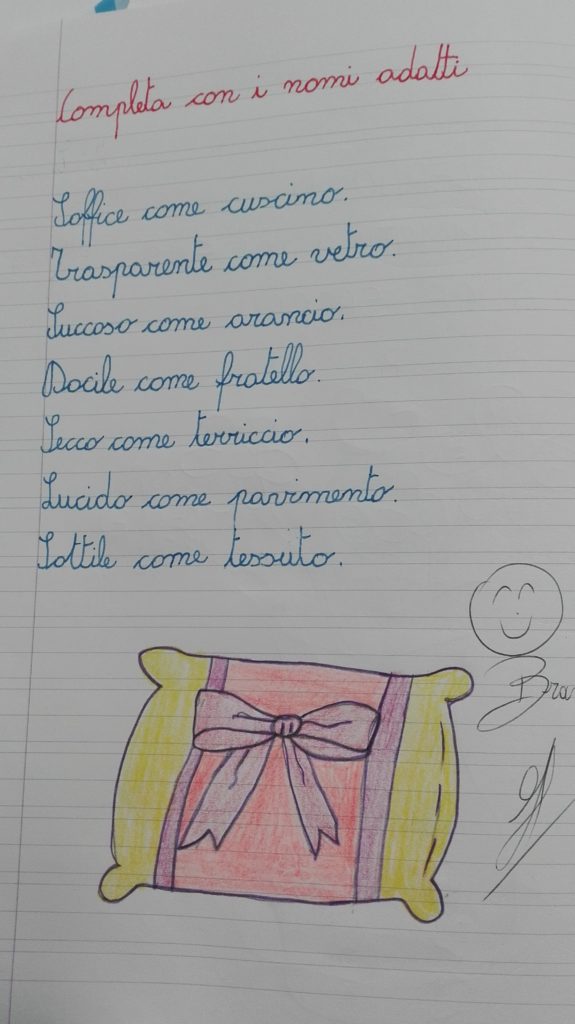 Completa con i nomi adatti
Soffice come cuscino.
Trasparente come vetro.
Succoso come arancio.
Docile come fratello.
Secco come terriccio.
Lucido come pavimento.
Sottile come tessuto.
Bra